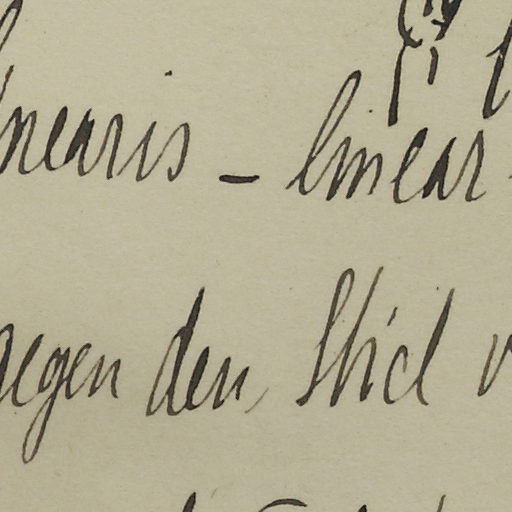 linearis - linear
gegen den Stiel